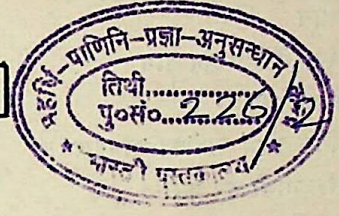 महर्षि-पाणिनि-प्रज्ञा-अनुसन्धान
तिथी..............
पु०सं०....226/2
पुस्तकालय